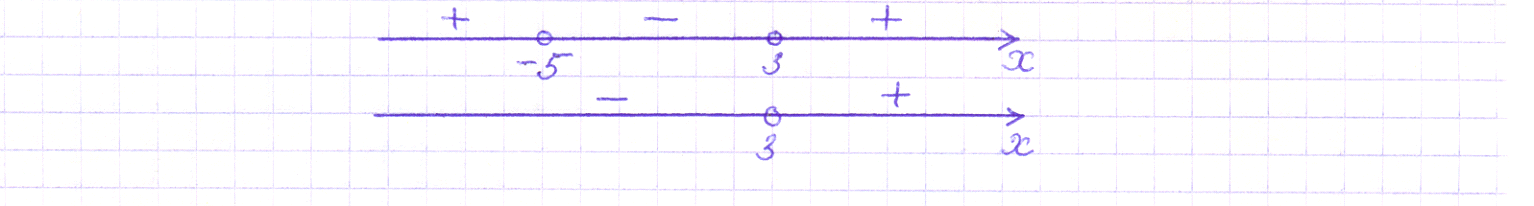 + − +
-5 3 x
− +
3 x